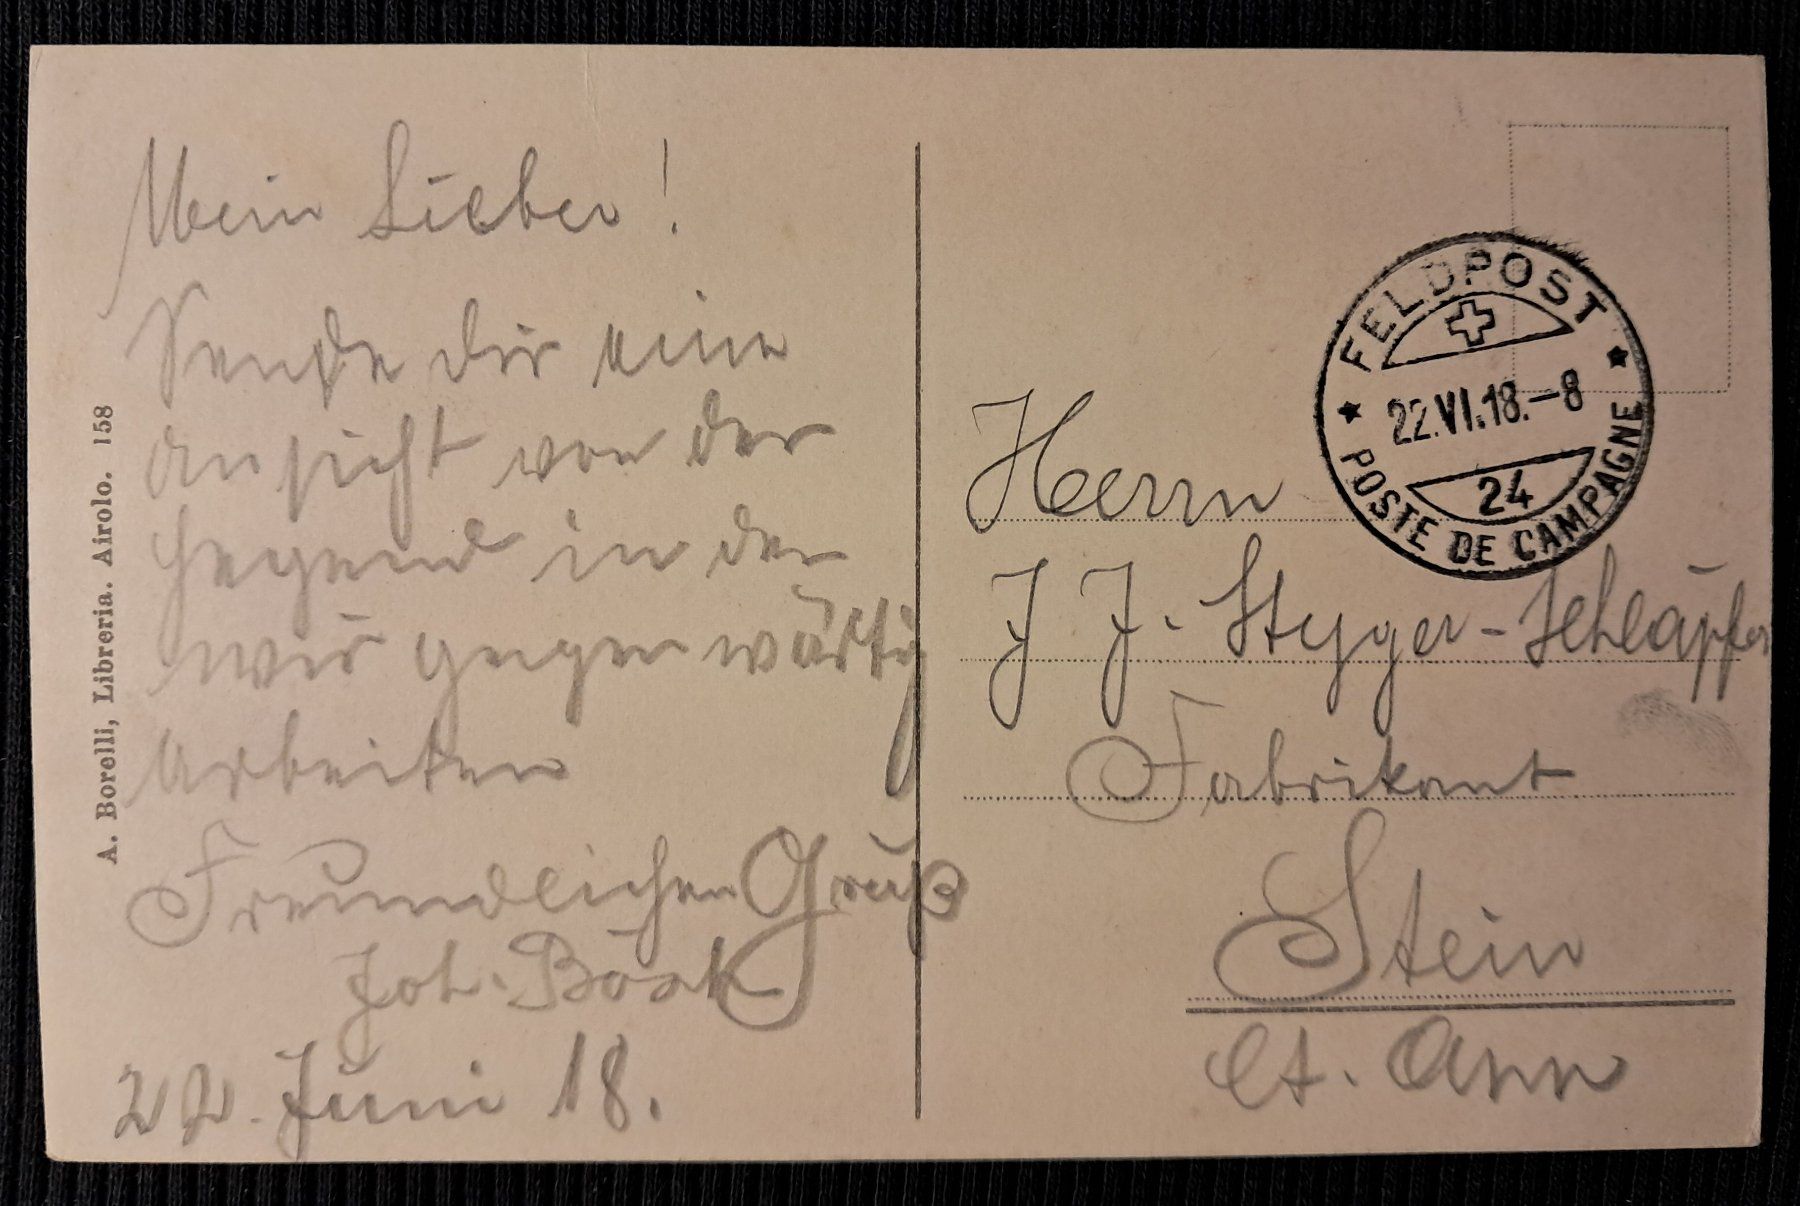 A. Borelli, Libreria. Airolo. 158
Mein Lieber!
Sende dir eine
Ansicht von der
Gegend in der
wir gegenwärtig
Arbeiten
Freundlichen Gruß
Joh.
22. Juni 18.
FELDPOST
22.VI.18.-8
24
POSTE DE CAMPAGNE
Herrn
J J. Styger-Schläpfer
Fabrikant
Stein
Ct. App